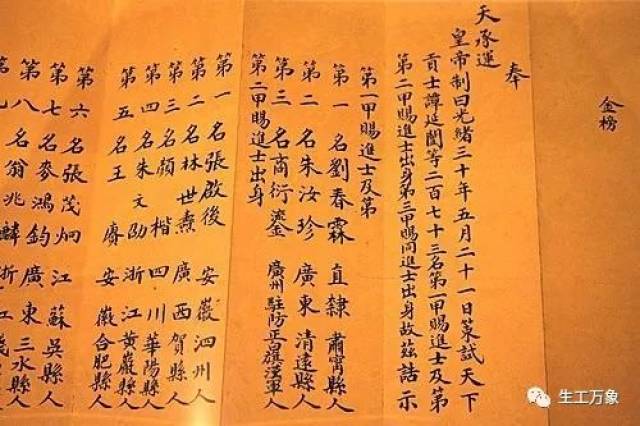 金榜
奉
天承運
皇帝制曰光緒三十年五月二十一日策試天下
貢士譚延闓等二百七十三名第一甲賜進士及第
第二甲賜進士出身第三甲賜同進士出身故茲誥示
第一甲賜進士及第
第一名劉春霖 直隸肅寧縣人
第二名朱汝珍 廣東清遠縣人
第三名商衍鎏 廣州駐防正白旗漢軍人
第二甲賜進士出身
第一名張啟後 安徽泗州人
第二名林世燾 廣西賀縣人
第三名顏楷 四川華陽縣人
第四名朱文劭 浙江黃巖縣人
第五名王賡 安徽合肥縣人
第六名張茂炯 江蘇吳縣人
第七名麥鴻鈞 廣東三水縣人
第八名翁兆麟 浙江
第九
生工万象